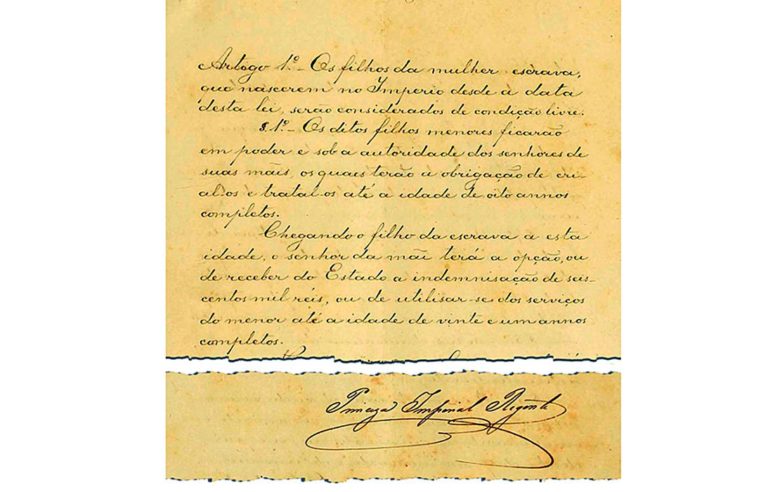 Artogo 1.º - Os filhos da mulher escrava,
que nascerem no Imperio desde a data
desta lei, serão considerados de condição livre.
§. 1.º - Os ditos filhos menores ficarão
em poder e sob a autoridade dos senhores de
suas mãis, os quaes terão a obrigação de cri-
al-os e tratal-os até a idade de oito annos
completos.
Chegando o filho da escrava a esta
idade, o senhor da mãi terá a opção, ou
de receber do Estado a indemnisação de seis-
centos mil réis, ou de utilisar-se dos serviços
do menor até a idade de vinte e um annos
completos.
Princeza Imperial Regente